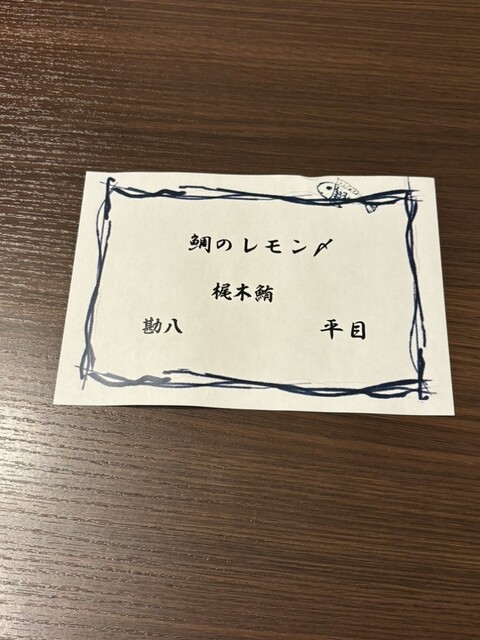 鯛のレモン〆
梶木鮪
勘八 平目